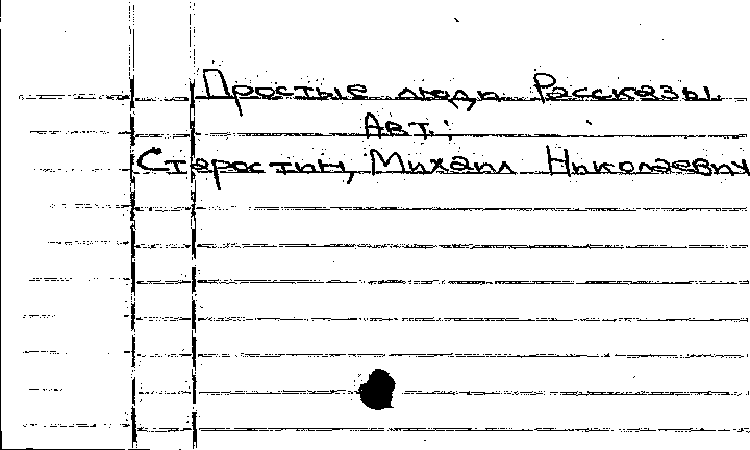 Простые люди Рассказы.
Авт.:
Старостин, Михаил Николаевич